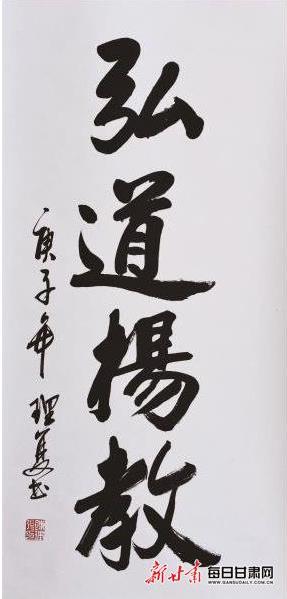 弘道揚教
庚子年 理 书
新甘肃 每日甘肃网
GANSUDAILY.COM